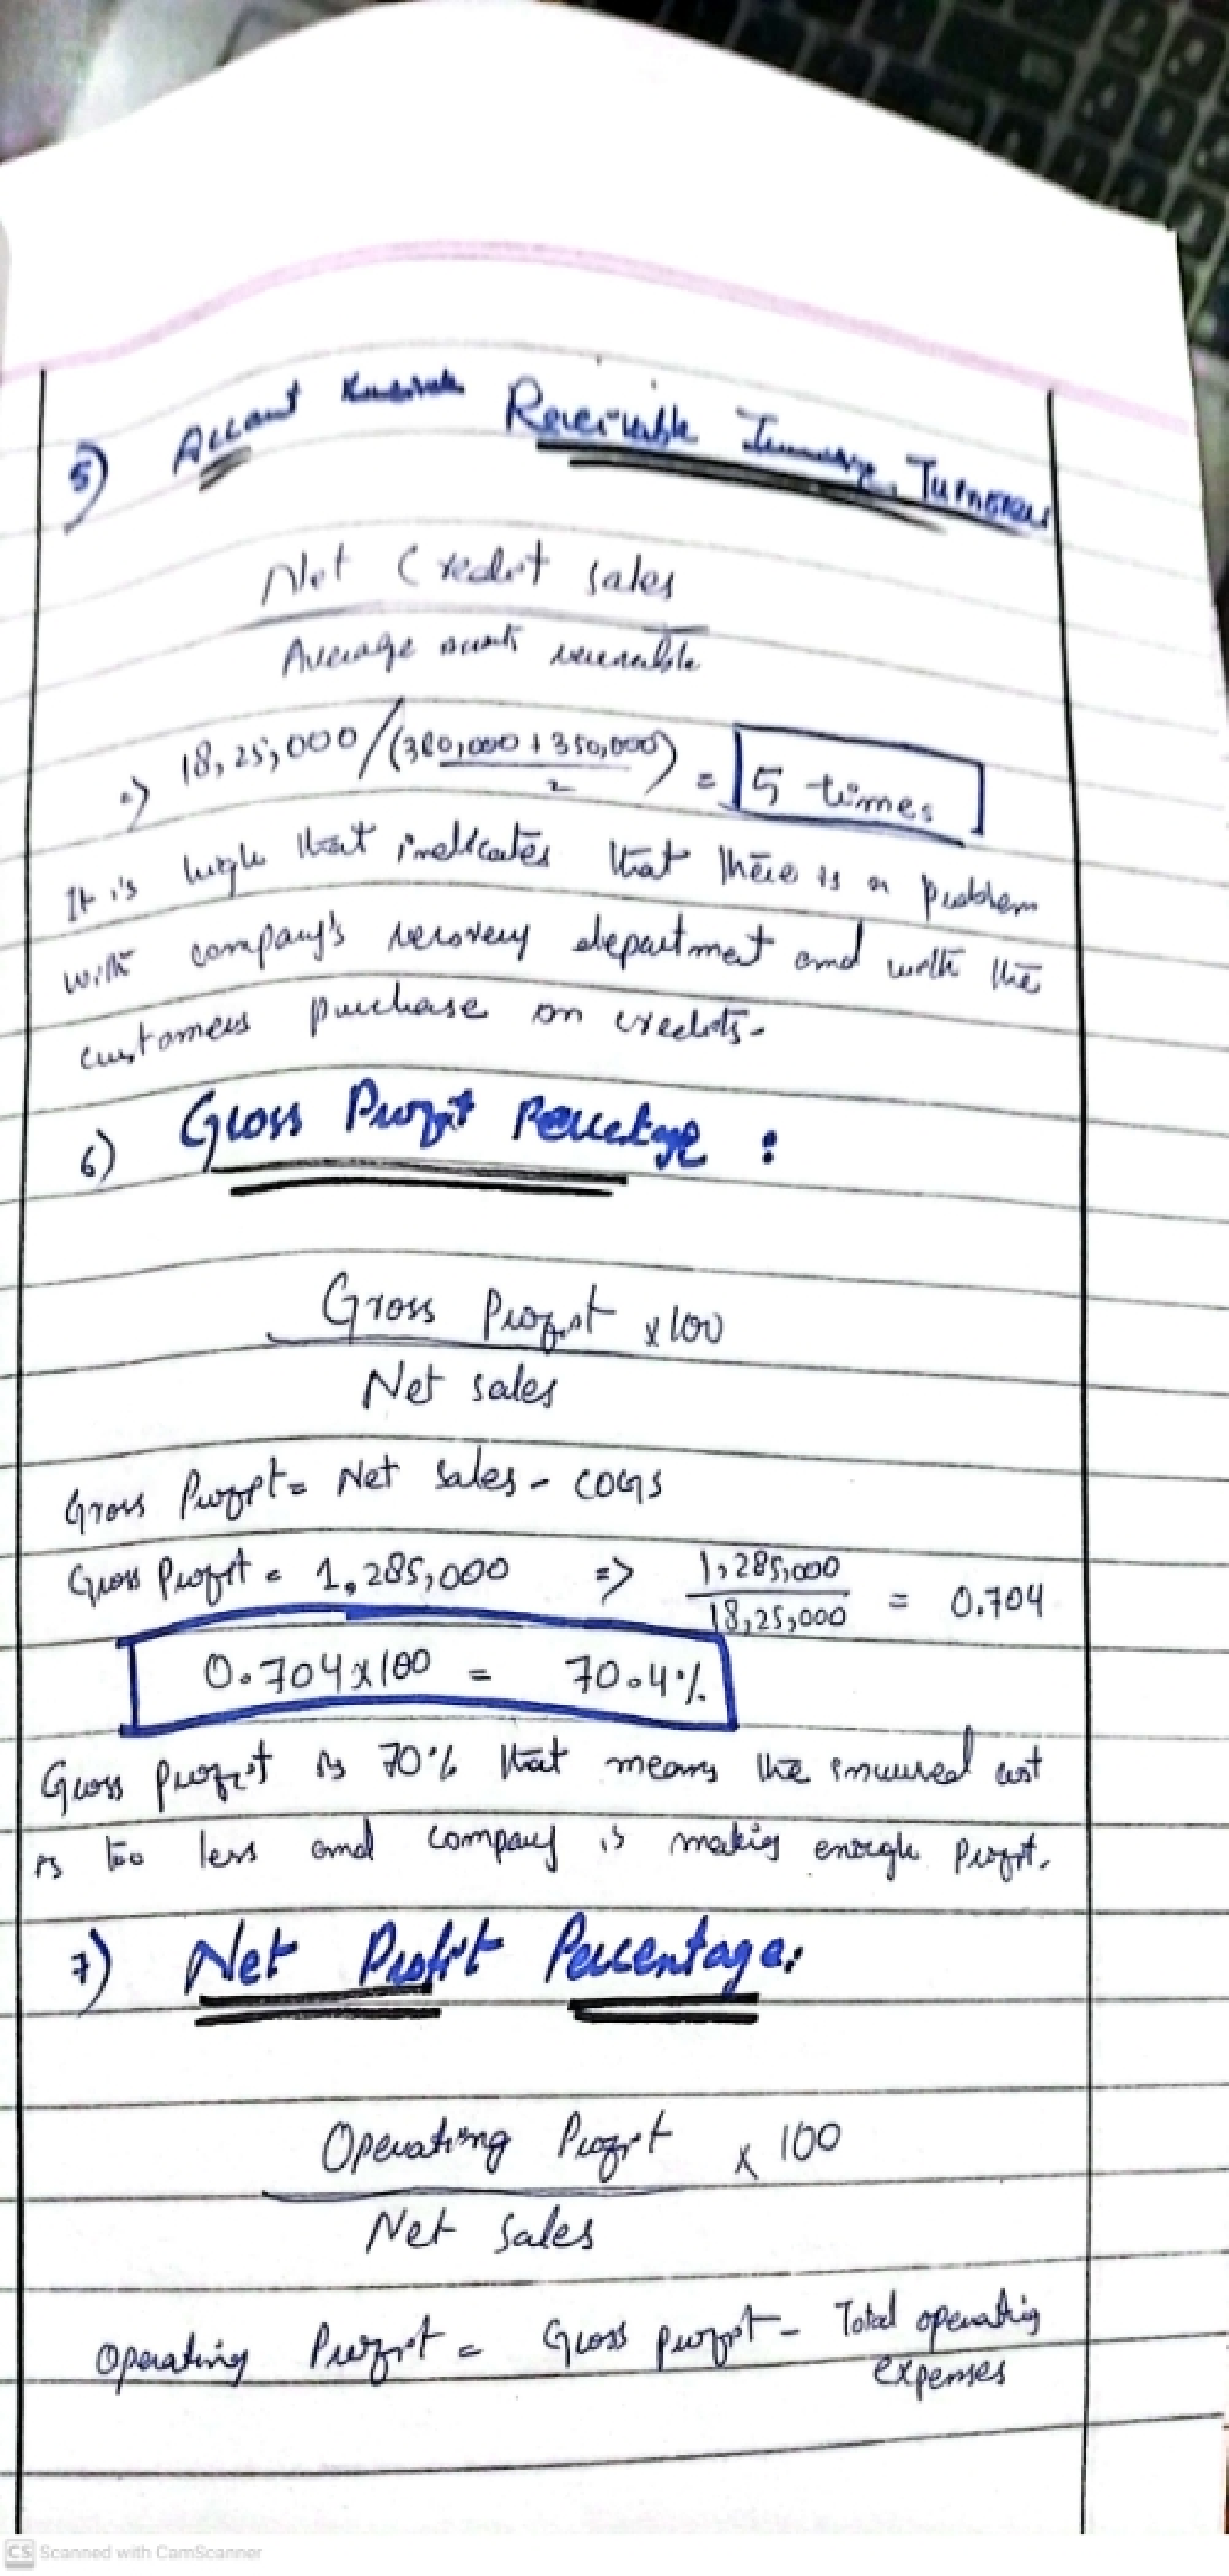 5) Account Receivable Turnover
Net Credit sales
Average accounts receivable
=> 18,25,000/(380,000 + 350,000) = 5 times
2
It is high that indicates that there is a problem
with company's recovery department and with the
customers purchase on credits.
6) Gross Profit Percentage :
Gross Profit x100
Net sales
Gross Profit = Net Sales - COGS
Gross Profit = 1,285,000 => 1,285,000 = 0.704
18,25,000
0.704x100 = 70.4%
Gross profit is 70% that means the incurred cost
is too less and company is making enough Profit.
7) Net Profit Percentage:
Operating Profit x 100
Net Sales
Operating Profit = Gross profit - Total operating
expenses
CS Scanned with CamScanner